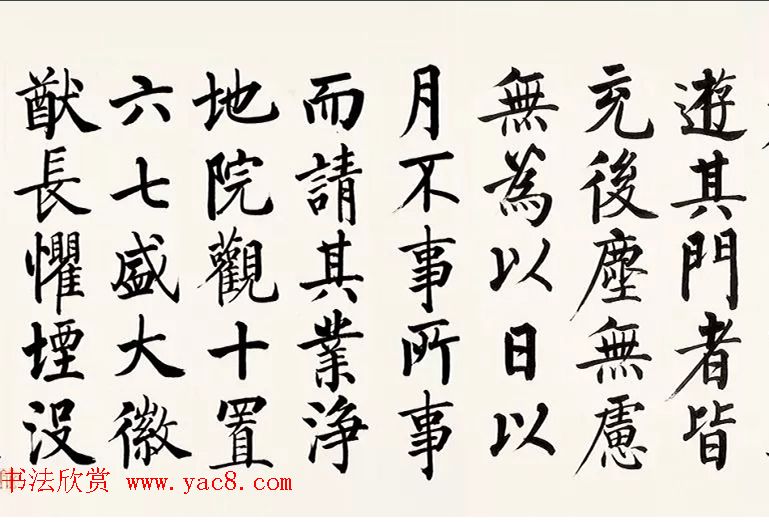 遊其門者皆
充後塵無慮
無為以日以
月不事所事
而請其業淨
地院觀十置
六七盛大徽
猷長懼堙没
书法欣赏 www.yac8.com